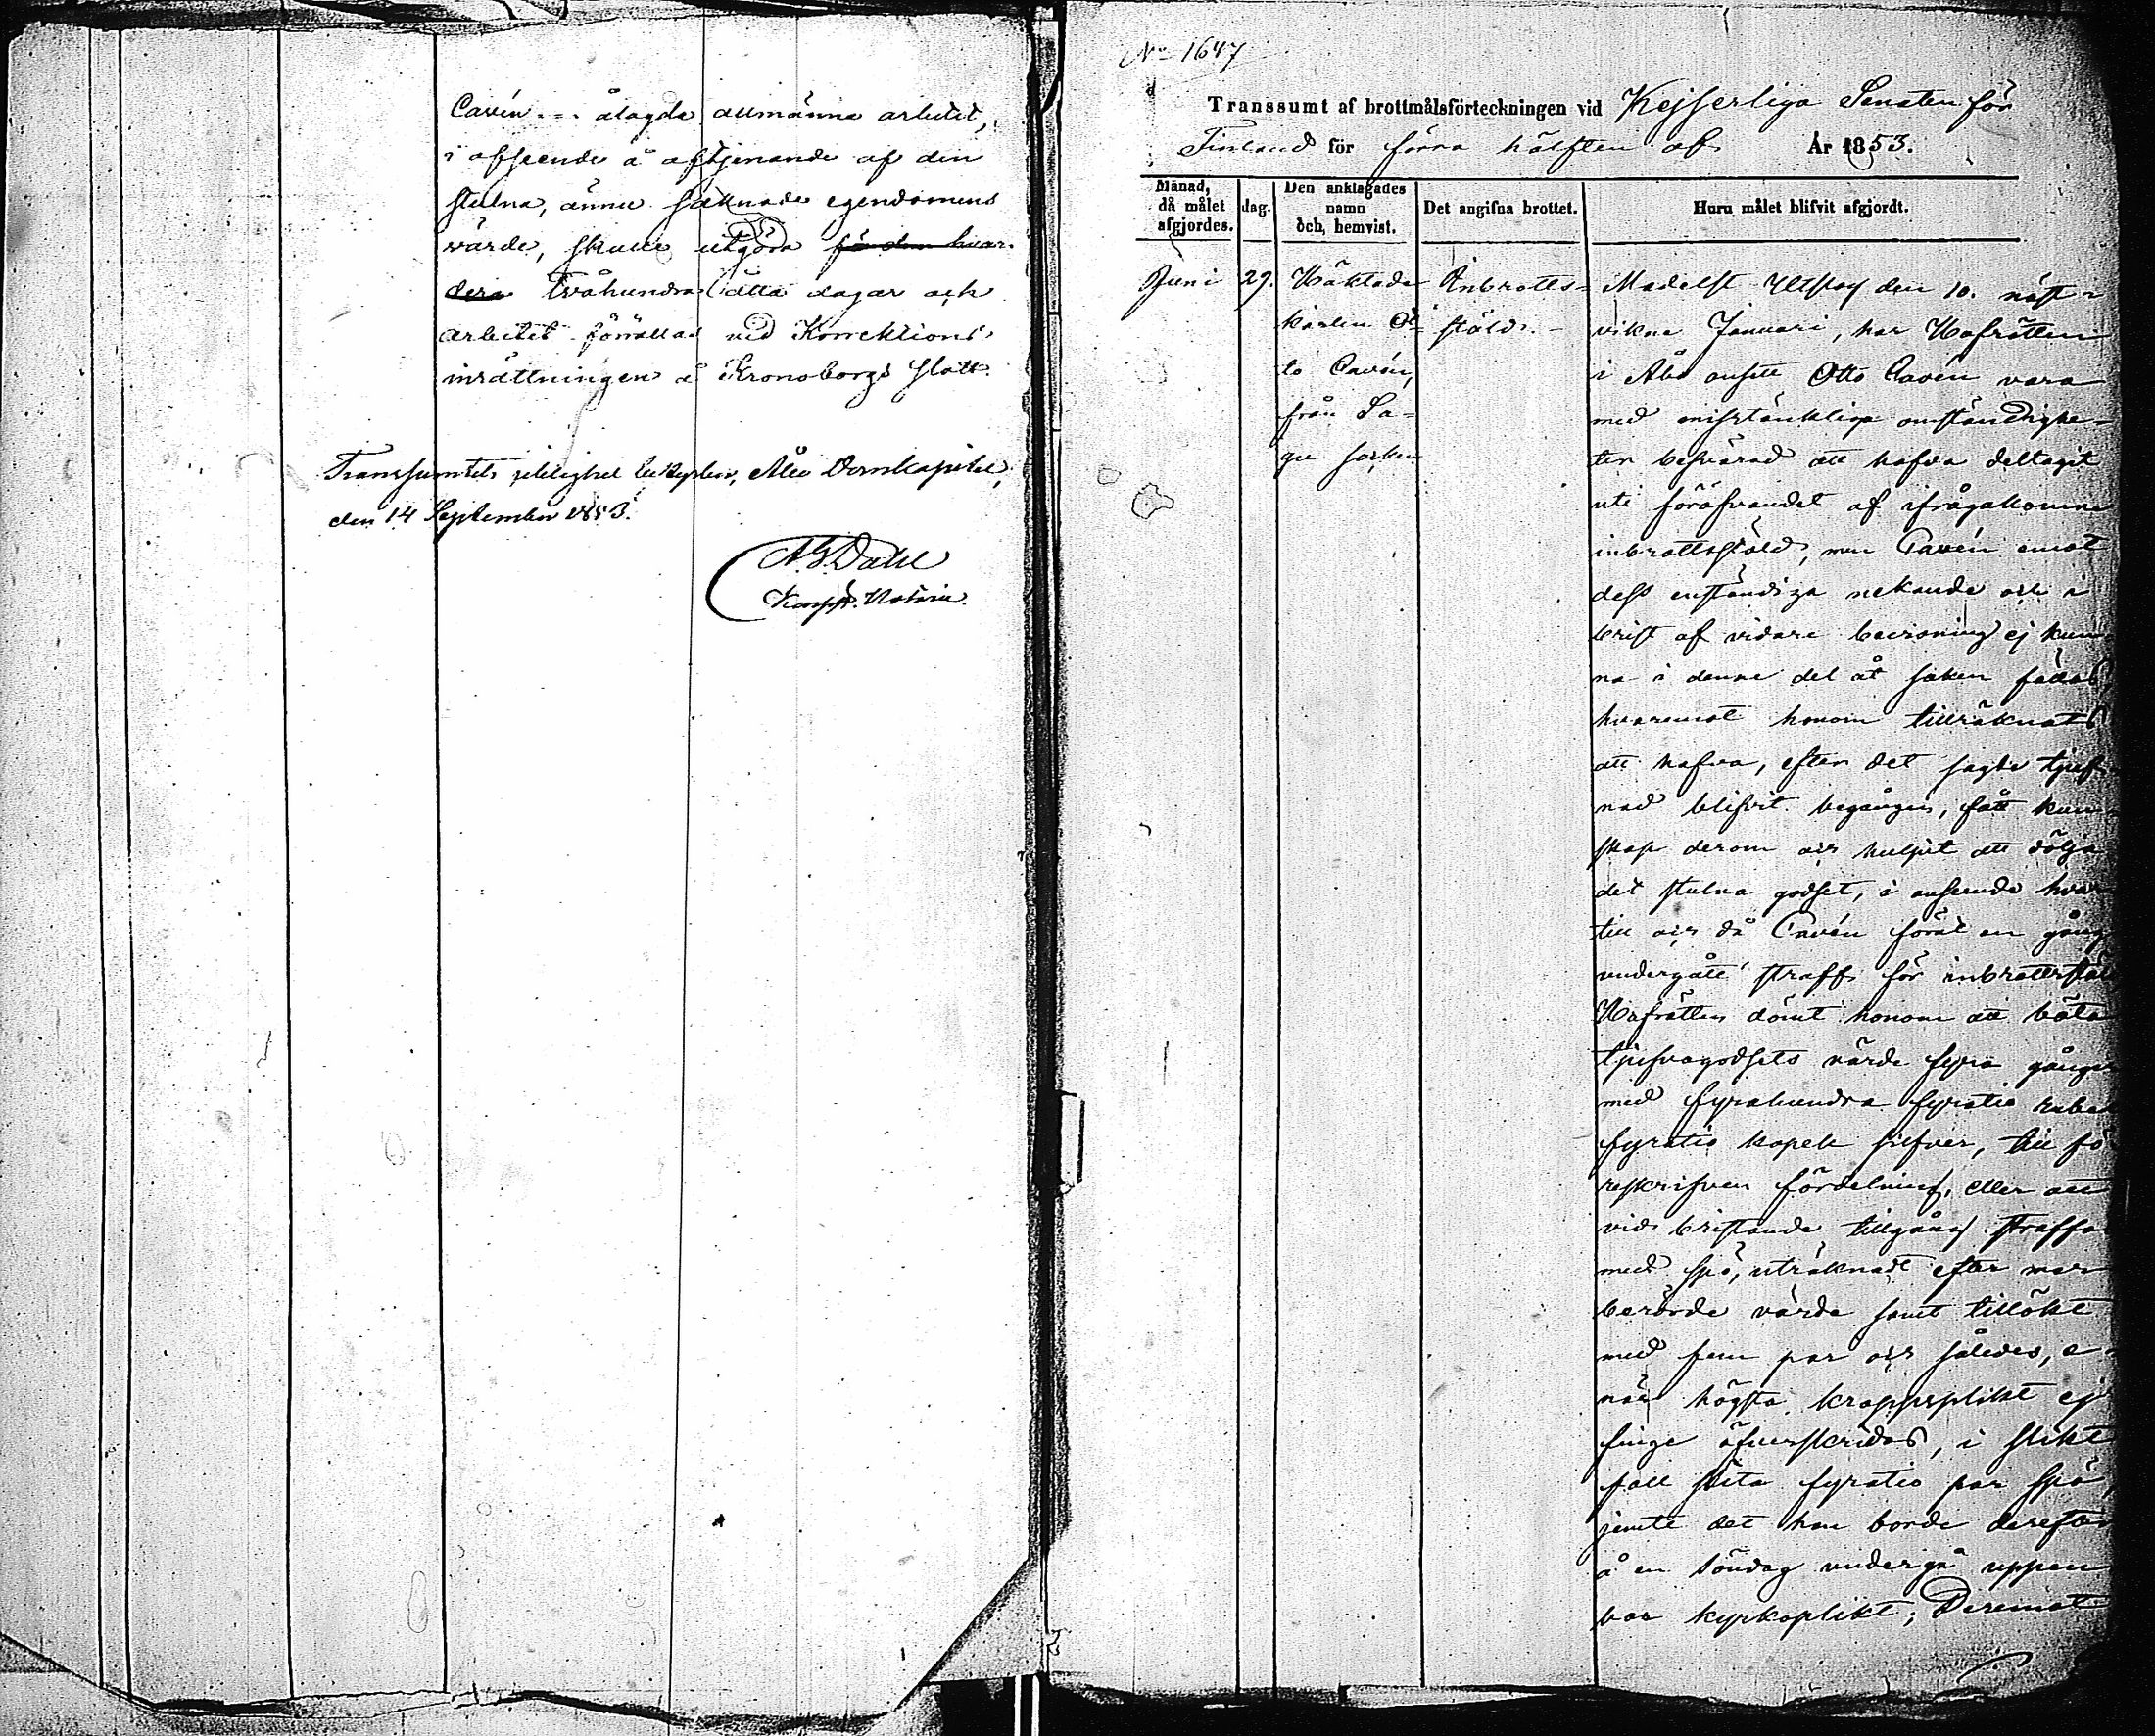 Cavén ålagda allmänna arbetet,
i afseende å aftjenande af den
stulna, ännu saknade egendomens
värde, skulle utgöra för dem hvar-
dera Tvåhundra åtta dagar och
arbetet förrättas vid Korrektions
inrättningen å Kronoborgs slott.
Transsumtets riktighet betygar, Åbo Domkapitel,
den 14 September 1853.
Dahl
Notarie.
No 1647
Transsumt af brottmålsförteckningen vid Kejserliga Senaten för
Finland för förra hälften af År 1853.
Månad, då målet afgjordes.
dag.
Den anklagades namn och, hemvist.
Det angifna brottet.
Huru målet blifvit afgjordt.
Juni 29.
Häktade
karlen Ot-
to Cavén,
från Sa-
gu socken
Inbrotts-
stöld.
Medelst Utslag den 10. näst-
vikne Januari, har Hofrätten
i Åbo ansett Otto Cavén vara
med misstänkliga omständighe-
ter besvärad att hafva deltagit
uti föröfvandet af ifrågakomne
inbrottsstöld, men Cavén emot
dess enständiga nekande och i
brist af vidare bevisning ej kun-
na i denne del åt saken fällas,
hvaremot honom tillräknats
att hafva, efter det sagde tjuf-
nad blifvit begången, fått kun-
skap derom och hulpit att dölja
det stulna godset, i anseende hvar-
till och då Cavén förut en gång
undergått straff för inbrottsstöld
Hofrätten dömt honom att böta
tjufvagodsets värde fyra gånger
med fyrahundra fyratio rubel
fyratio kopek silfver, till fö-
reskrifven fördelning, eller att
vid bristande tillgång straffas
med spö, uträknadt efter mer-
berörde värde samt tillökt
med fem par och således, e-
när högsta kroppsplikt ej
finge öfverskridas, i slikt
fall slita fyratio par spö,
jemte det han borde derefter
å en söndag undergå uppen-
bar kyrkoplikt; Deremot